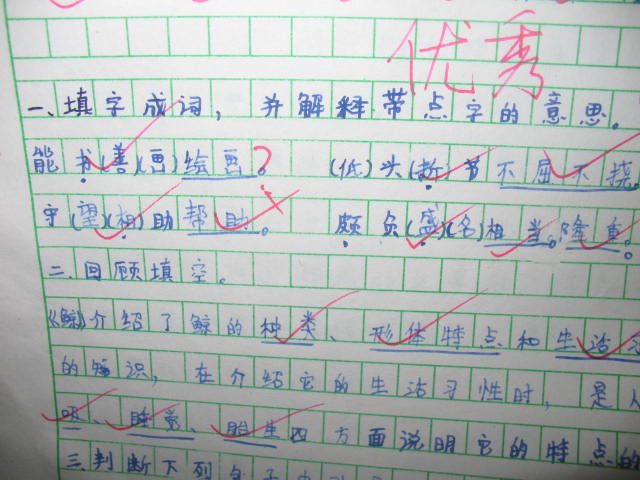 优秀
一、填字成词,并解释带点字的意思。
能书(善)(画)绘画。? (低)头(折)节不屈不挠。
守(望)(相)助帮助。 颇负(盛)(名)相当。隆重。
二.回顾填空。
《鲸》介绍了鲸的种类、形体特点和生活习
的知识,在介绍它的生活习性时,是从
吸、睡觉、胎生四方面说明它的特点的
三.判断下列句子